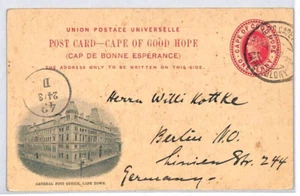 UNION POSTALE UNIVERSELLE
POST CARD—CAPE OF GOOD HOPE
(CAP DE BONNE ESPERANCE)
THE ADDRESS ONLY TO BE WRITTEN ON THIS SIDE.
Herrn Willi Kottke
Berlin N.O.
Linien Str. 244
Germany
42
24/3
II
GENERAL POST OFFICE, CAPE TOWN.